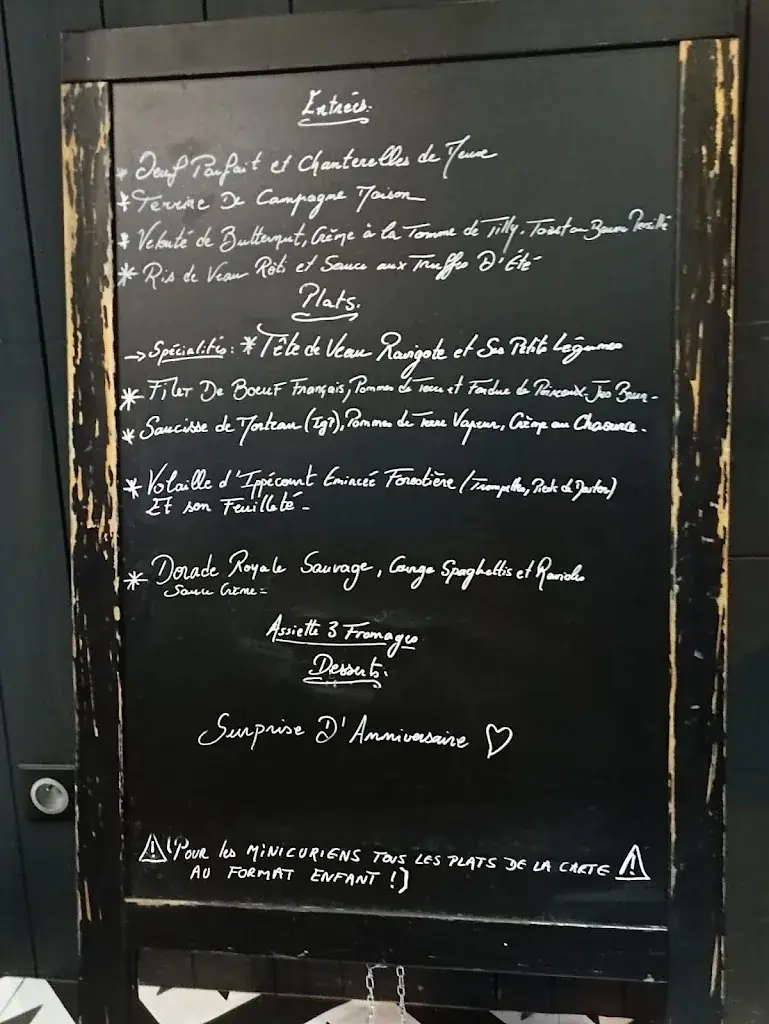 Entrées.
* Oeuf Parfait et Chanterelles de Meuse
* Terrine De Campagne Maison
* Velouté de Butternut, Crème à la Tomme de Tilly. Toast au Beurre Persillé
* Ris de Veau Rôti et Sauce aux Truffes D'Été
Plats.
→ Spécialités : * Tête de Veau Ravigote et Ses Petits Légumes
* Filet De Boeuf Français, Pommes de Terre et Fondue de Poireaux. Jus Brun -
* Saucisse de Morteau (Igp), Pommes de Terre Vapeur, Crème au Chaource -
* Volaille d'Ippécourt Emincée Forestière (Trompettes, Pieds de Mouton)
Et son Feuilleté -
* Dorade Royale Sauvage, Courge Spaghettis et Ravioles
Sauce Crème -
Assiette 3 Fromages
Desserts.
Surprise D'Anniversaire ♡
⚠ (Pour les MINICURIENS TOUS LES PLATS DE LA CARTE ⚠
AU FORMAT ENFANT !)